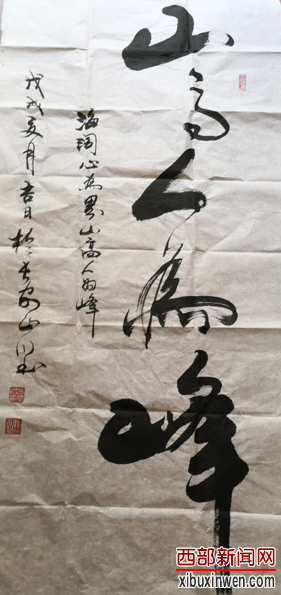 山高人為峰
海阔心為界山高人为峰
戊戌夏月吉日於长安
西部新闻网
xibuxinwen.com